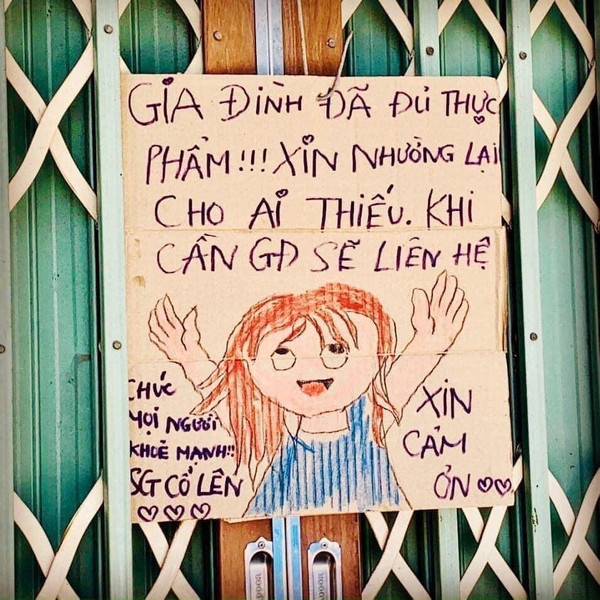 GIA ĐÌNH ĐÃ ĐỦ THỰC
PHẨM!!! XIN NHƯỜNG LẠI
CHO AI THIẾU. KHI
CẦN GĐ SẼ LIÊN HỆ
CHÚC
MỌI NGƯỜI
KHOẺ MẠNH!!
SG CỐ LÊN
XIN
CẢM
ƠN